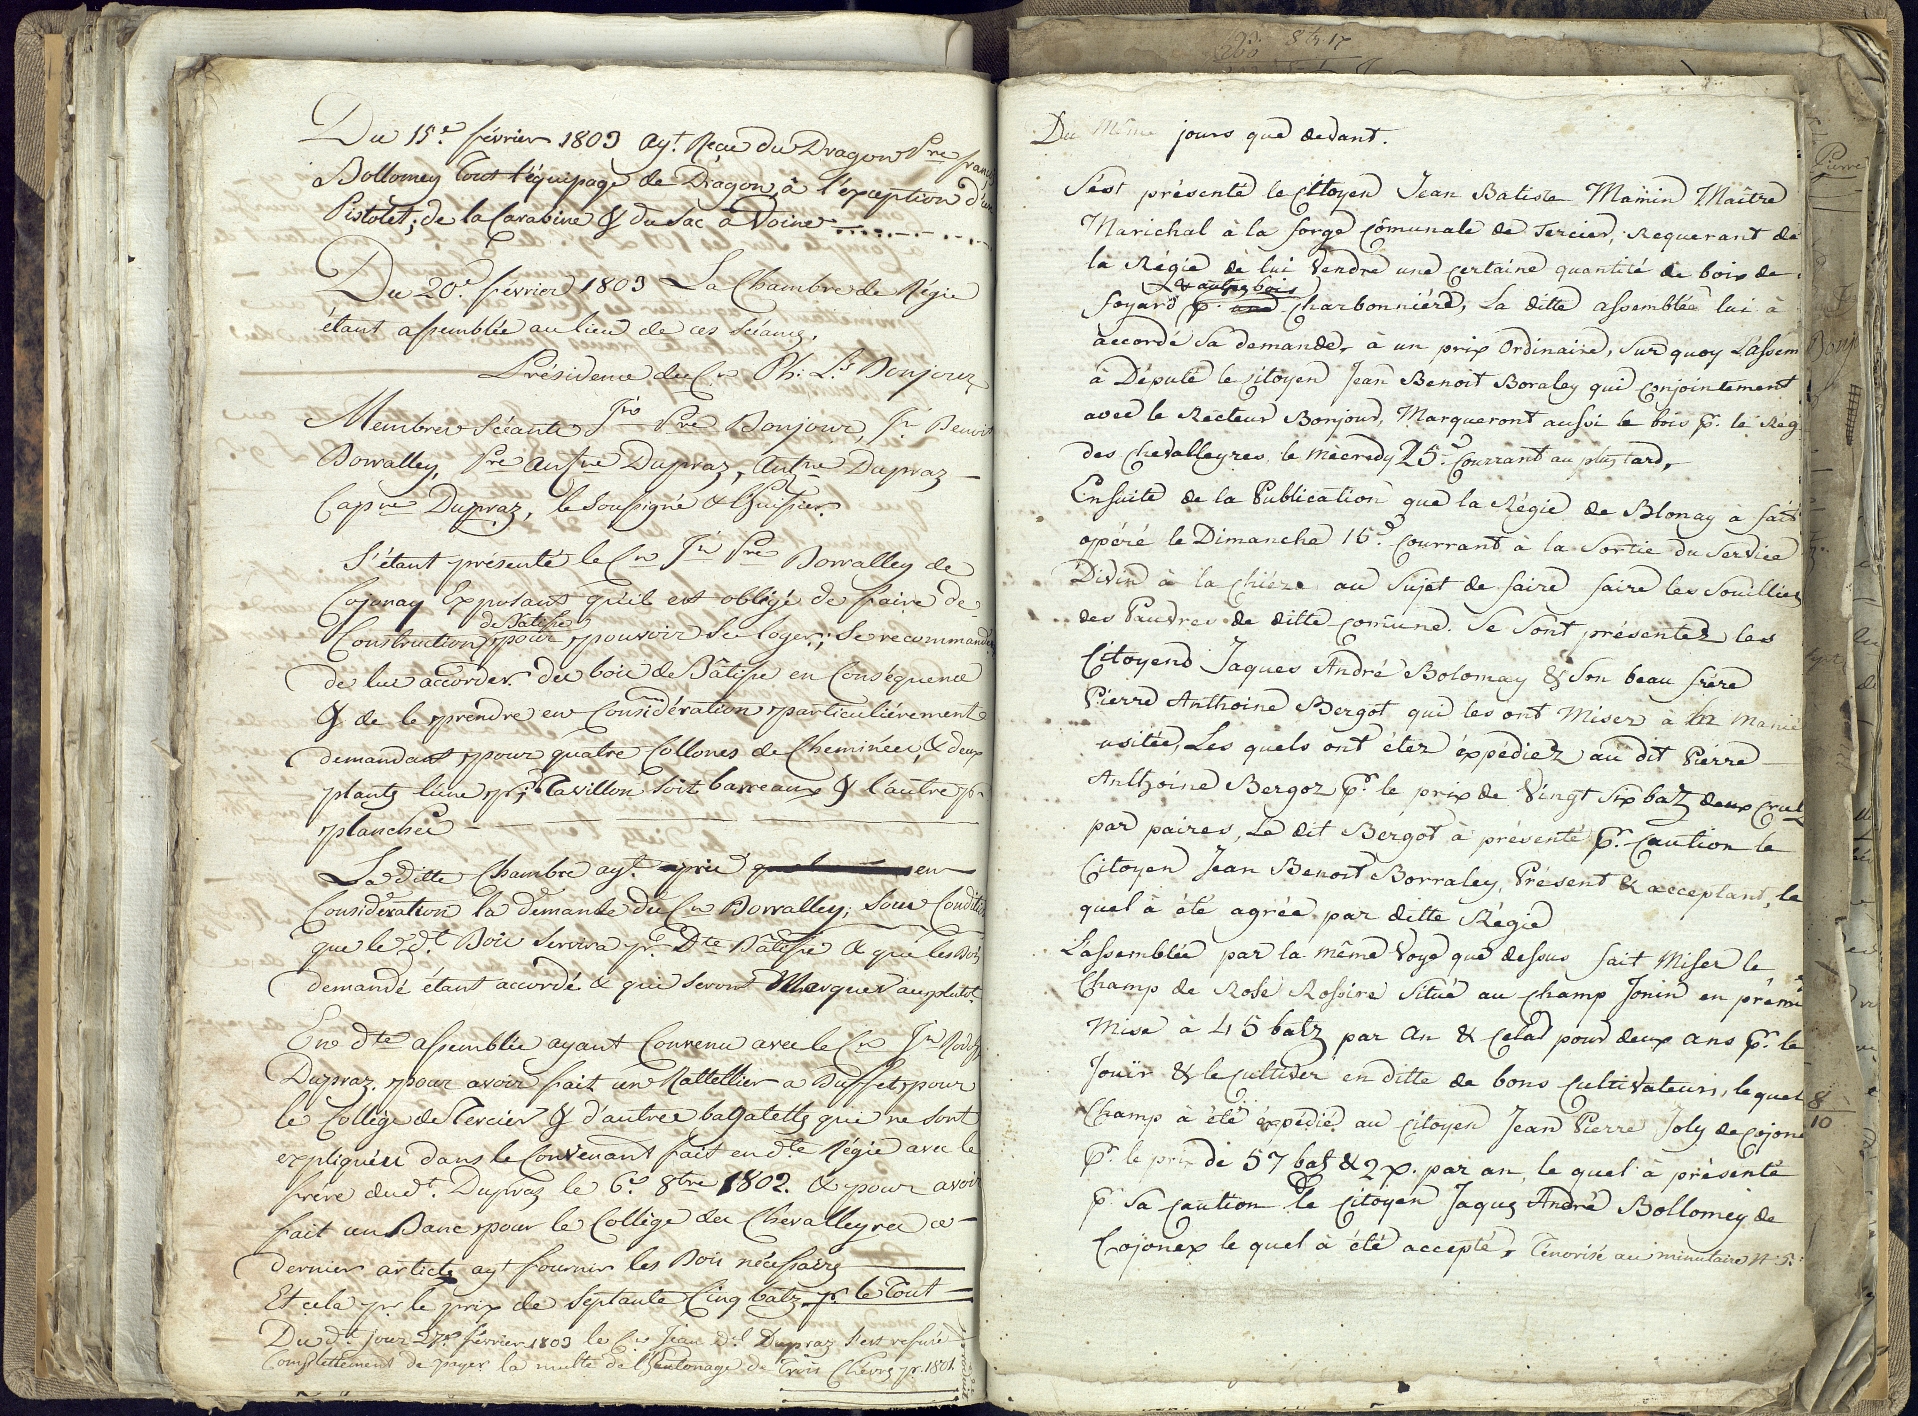 Du 15.e février 1803 ay.t Reçu du Dragon P.re françs
Bollomey Tout l'équipage de Dragon, à l'éxception d'un
Pistolet; de la Carabine & du Sac à Avoine
Du 20.e février 1803 La Chambre de Régie
étant assemblée au lieu de ces Séance,
Présidence du C.n Ph: L.s Bonjour
Membres Séants J.n P.re Bonjour, J.n Benoit
Borralley, P.re Ant.ne Dupraz, Ant.ne Dupraz
Cap.ne Dupraz, le Soussigné & l'huissier.
S'étant présenté le C.n J.n P.re Borralley de
Cojonay Exposant qu'il est obligé de faire de
de Batisse
Construction pour pouvoir Se loger; Se recommande
de lui accorder du bois de Bâtisse en Conséquence
& de le prendre en Considération particulièrement
demandant pour quatre Collones de Cheminée, & deux
plants l'une p.r Tavillon soit barreaux & l'autre p.r
planchée
La ditte Chambre ay.t pris en
Considération la demande du C.n Borralley; Sous Condition
que le d.t Bois Servira p.r D.te Bâtisse & que les Bois
demandé étant accordé & qui seront Marquer au plutot
En d.te assemblée ayant Convenu avec le C.n J.n Rod.
Dupraz pour avoir fait un Rattellier a Buffet pour
le Collège de Tercier & d'autres bagatelle que ne sont
expliquéee dans le Convenant fait en d.te Régie avec le
frère du d.t Dupraz le 6.e 8bre 1802. & pour avoir
fait un Banc pour le Collège des Chevalleyres ce
dernier article ay.t fournir les Bois nécessaire
Et cela p.r le prix de Septante Cinq batz p.r le Tout
Du d.t jour 27.e février 1803 le C.n Jean D.l Dupraz S'est refusé
Complettement de payer la multe de l'Entonage de Trois Chèvre p.r 1801.
93. 8 17
260
Du Même jours que devant.
S'est présenté le Citoyen Jean Batiste Mamin Maître
Marichal à la forge Cômunale de Tercier, Requerant de
la Régie de lui Vendre une certaine quantité de bois de
& autres bois
foyard p.r Charbonnière, La ditte assemblée lui à
accordé Sa demande, à un prix Ordinaire, Sur quoy L'assem
à Député le Citoyen Jean Benoit Boraley qui conjointement
avec le Recteur Bonjour, Marqueront aussi le bois p.r le Rég
des Chevalleyres le mécredy 25.e Courrant au plus tard,
Ensuite de la Publication que la Régie de Blonay à fait
opéré le Dimanche 16.e Courrant à la Sortie du Service
Divin à la Chiéza au Sujet de faire faire les Souillier
des Paudres de ditte Comune. Se Sont présentez les
Citoyens Jaques André Bolomay & Son beau frére
Pierre Anthoine Bergot qui les ont Miser à la Manié
usitée, Les quels ont étez éxpédiez au dit Piérre
Anthoine Bergoz p.r le prix de Vingt Six batz deux Crutz
par paires, Le dit Bergot à présenté p.r Caution le
Citoyen Jean Benoit Borraley, Présent & acceptant, le
quel à été agrée par ditte Régie
L'assemblée par la même Voye que dessus fait Miser le
Champ de Rose Rossire Situé au Champ Jonin en prémié
Mise à 45 batz par An & Celà pour deux Ans p.r le
Jouïr & le cultiver en ditte de bons Cultivateurs, le quel
Champ à été éxpédié au Citoyen Jean Pierre Joly de Cojone
p.r le prix de 57 batz & 2 x. par an, le quel à présenté
p.r Sa Caution le Citoyen Jaques André Bollomey de
Cojonex le quel à été accepté, Ténorisé au minutaire N.5.
Pierre
Bonj
8
10